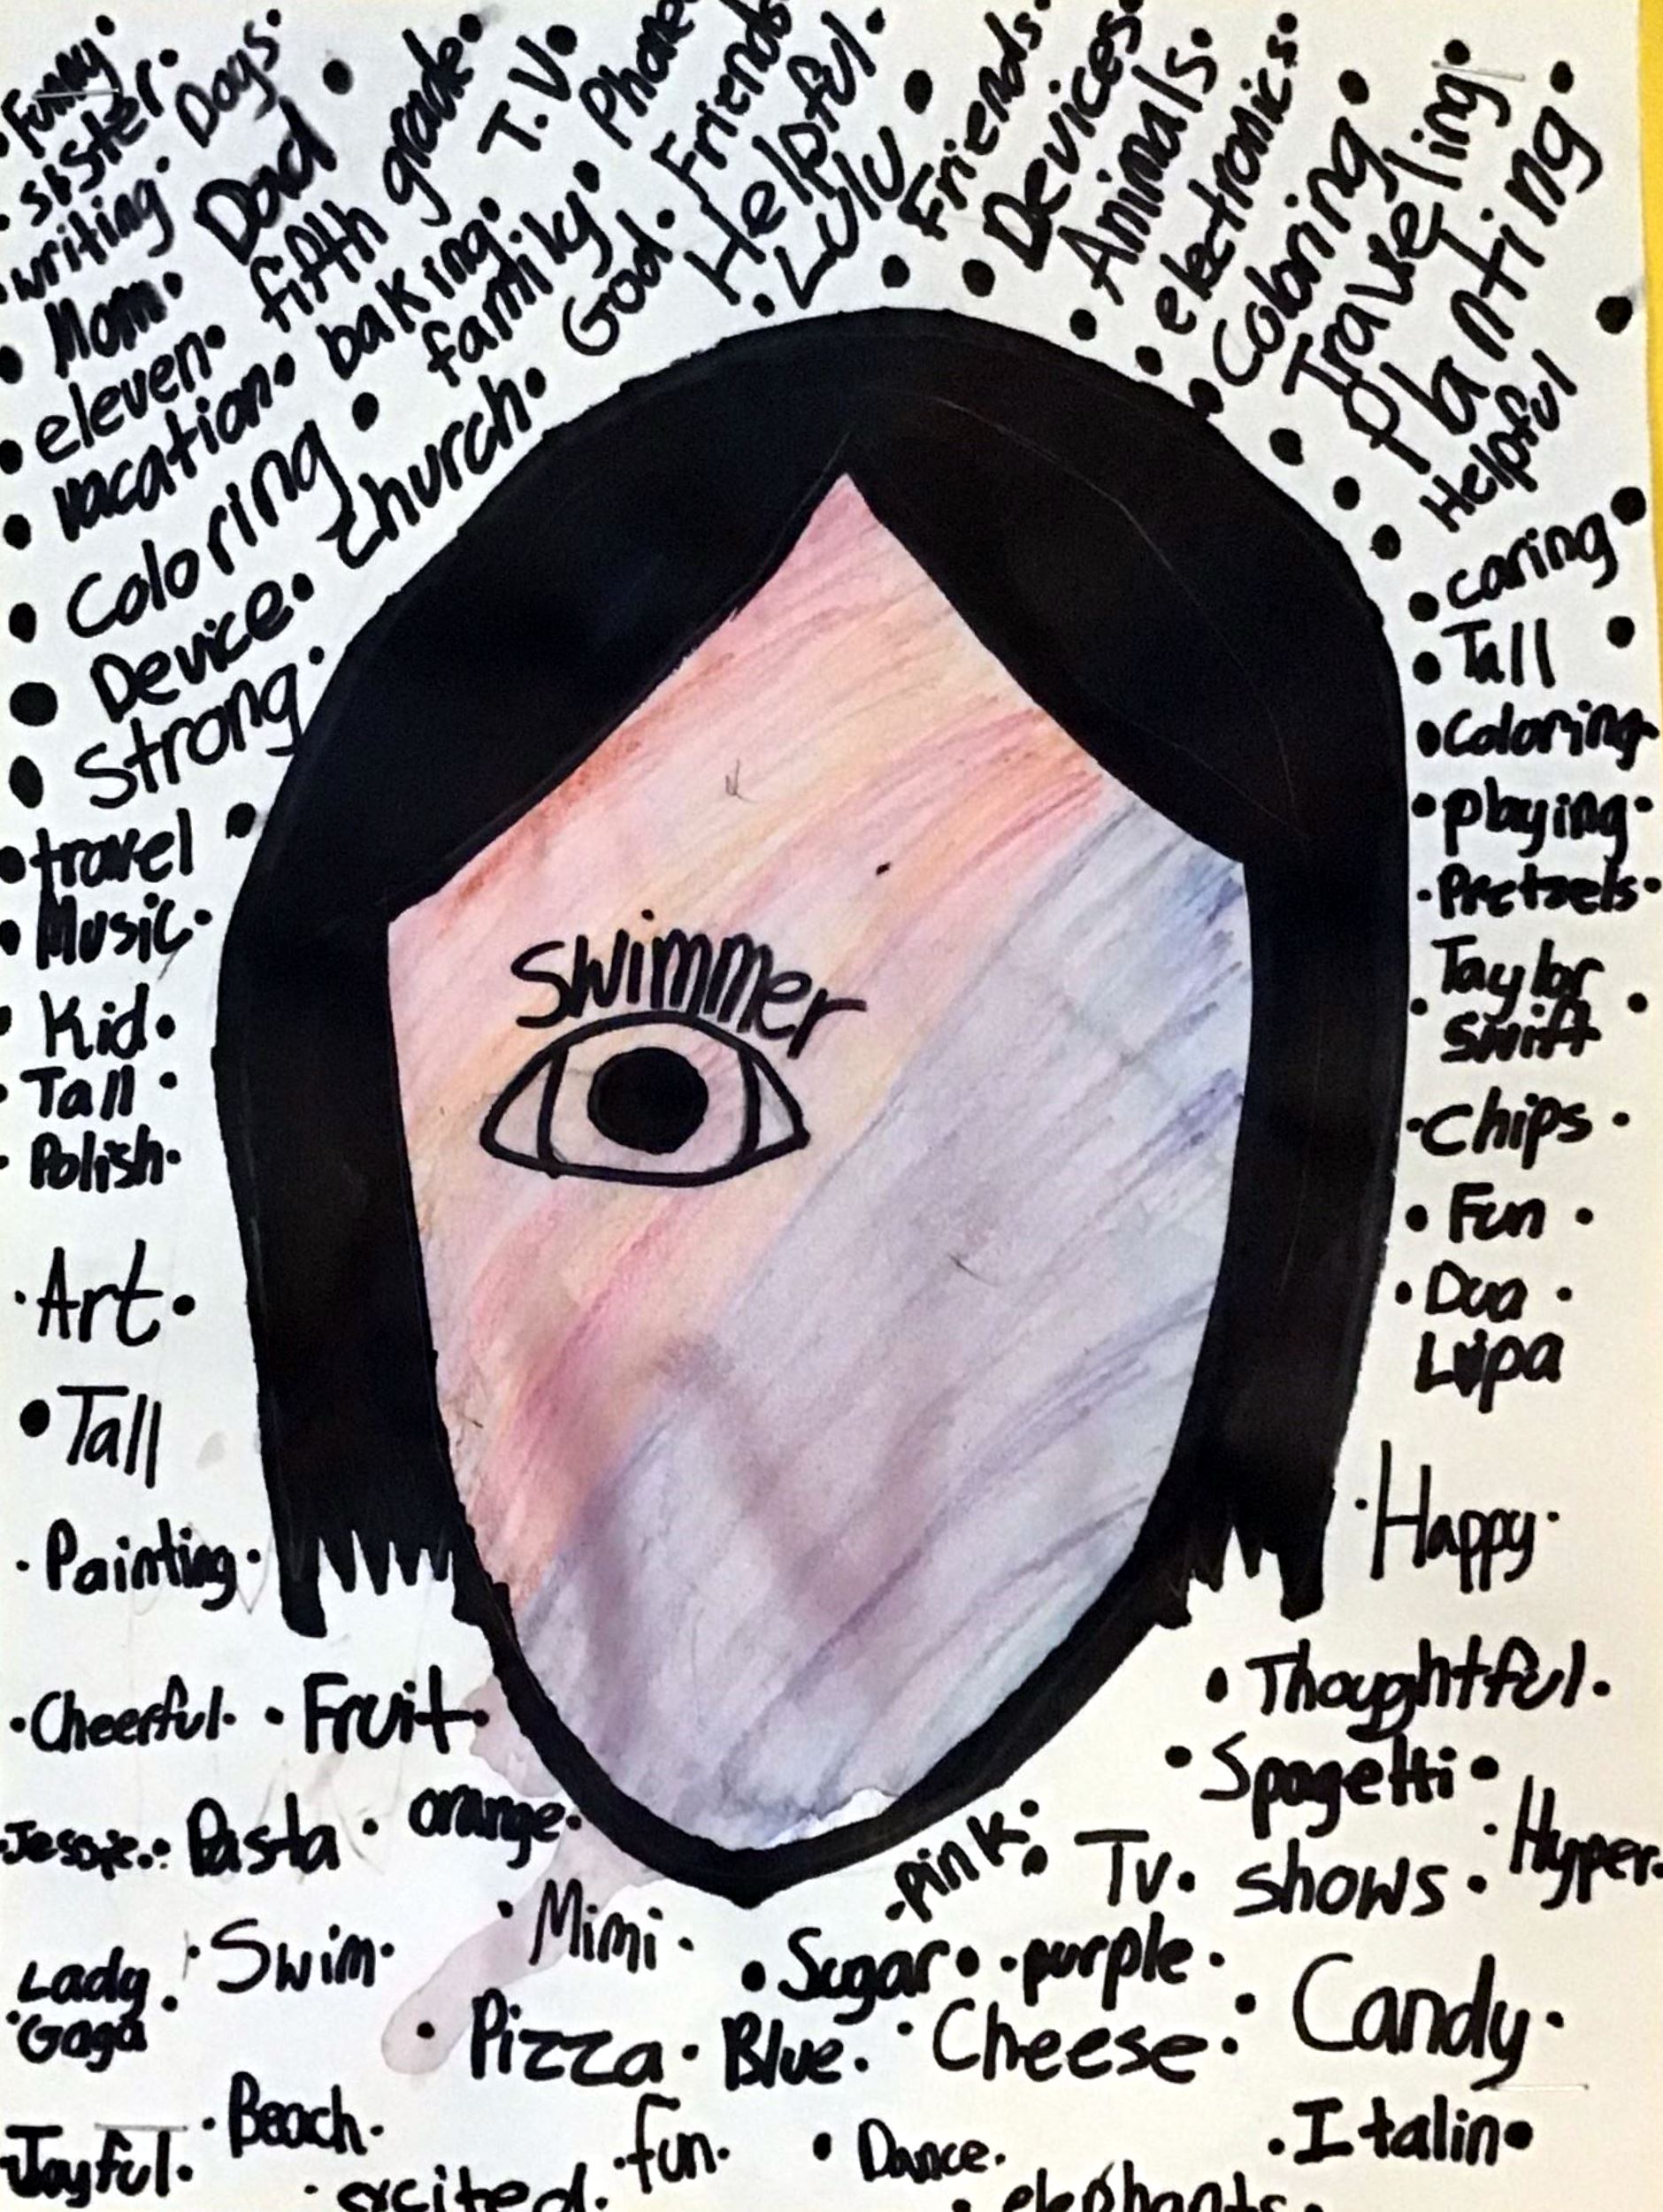 Funny.
sister.
writing. Dogs.
Mom. Dad
eleven. fifth grade.
vacation. baking. T.V.
Coloring family. Phone
Device. church. God. Friends
Strong. Helpful.
Lulu
Friends.
Devices.
Animals.
electronics.
Coloring
Traveling.
planting
Helpful
caring
Tall
Coloring
playing.
Pretzels.
Taylor
Swift
Chips.
Fun.
Dua
Lipa
Happy.
travel
Music.
Kid.
Tall
Polish.
Art.
Tall
Painting.
Swimmer
Cheerful. Fruit.
Jessie. Pasta. orange.
Thoughtful.
Spagetti
Hyper.
pink. Tv. shows.
Mimi.
Lady
Gaga
Swim.
Sugar. purple.
Pizza. Blue. Cheese. Candy.
Beach.
Joyful.
excited.
fun.
Dance.
Italin
elephants.